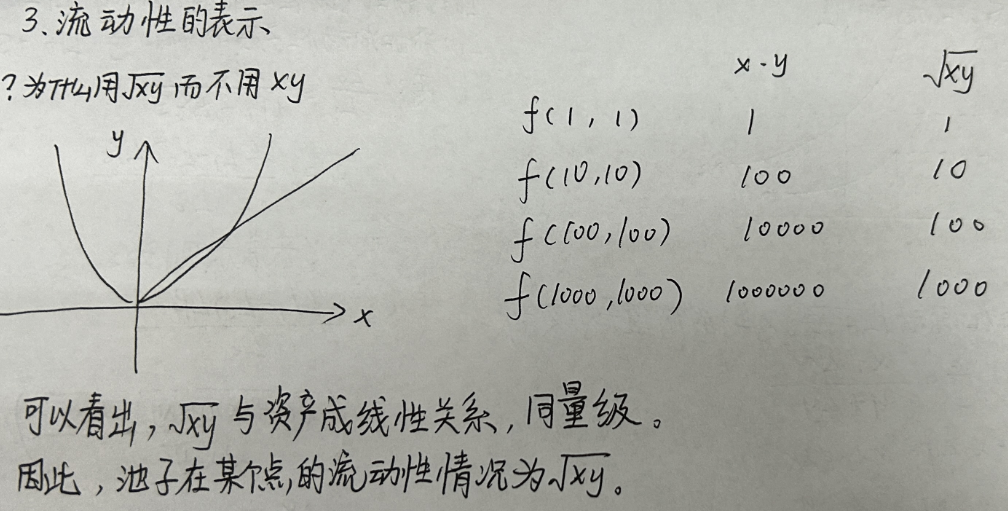 3、流动性的表示
?为什么用√xy而不用xy
x·y √xy
f(1,1) 1 1
f(10,10) 100 10
f(100,100) 10000 100
f(1000,1000) 1000000 1000
y
x
可以看出，√xy与资产成线性关系，同量级。
因此，池子在某个点的流动性情况为√xy。